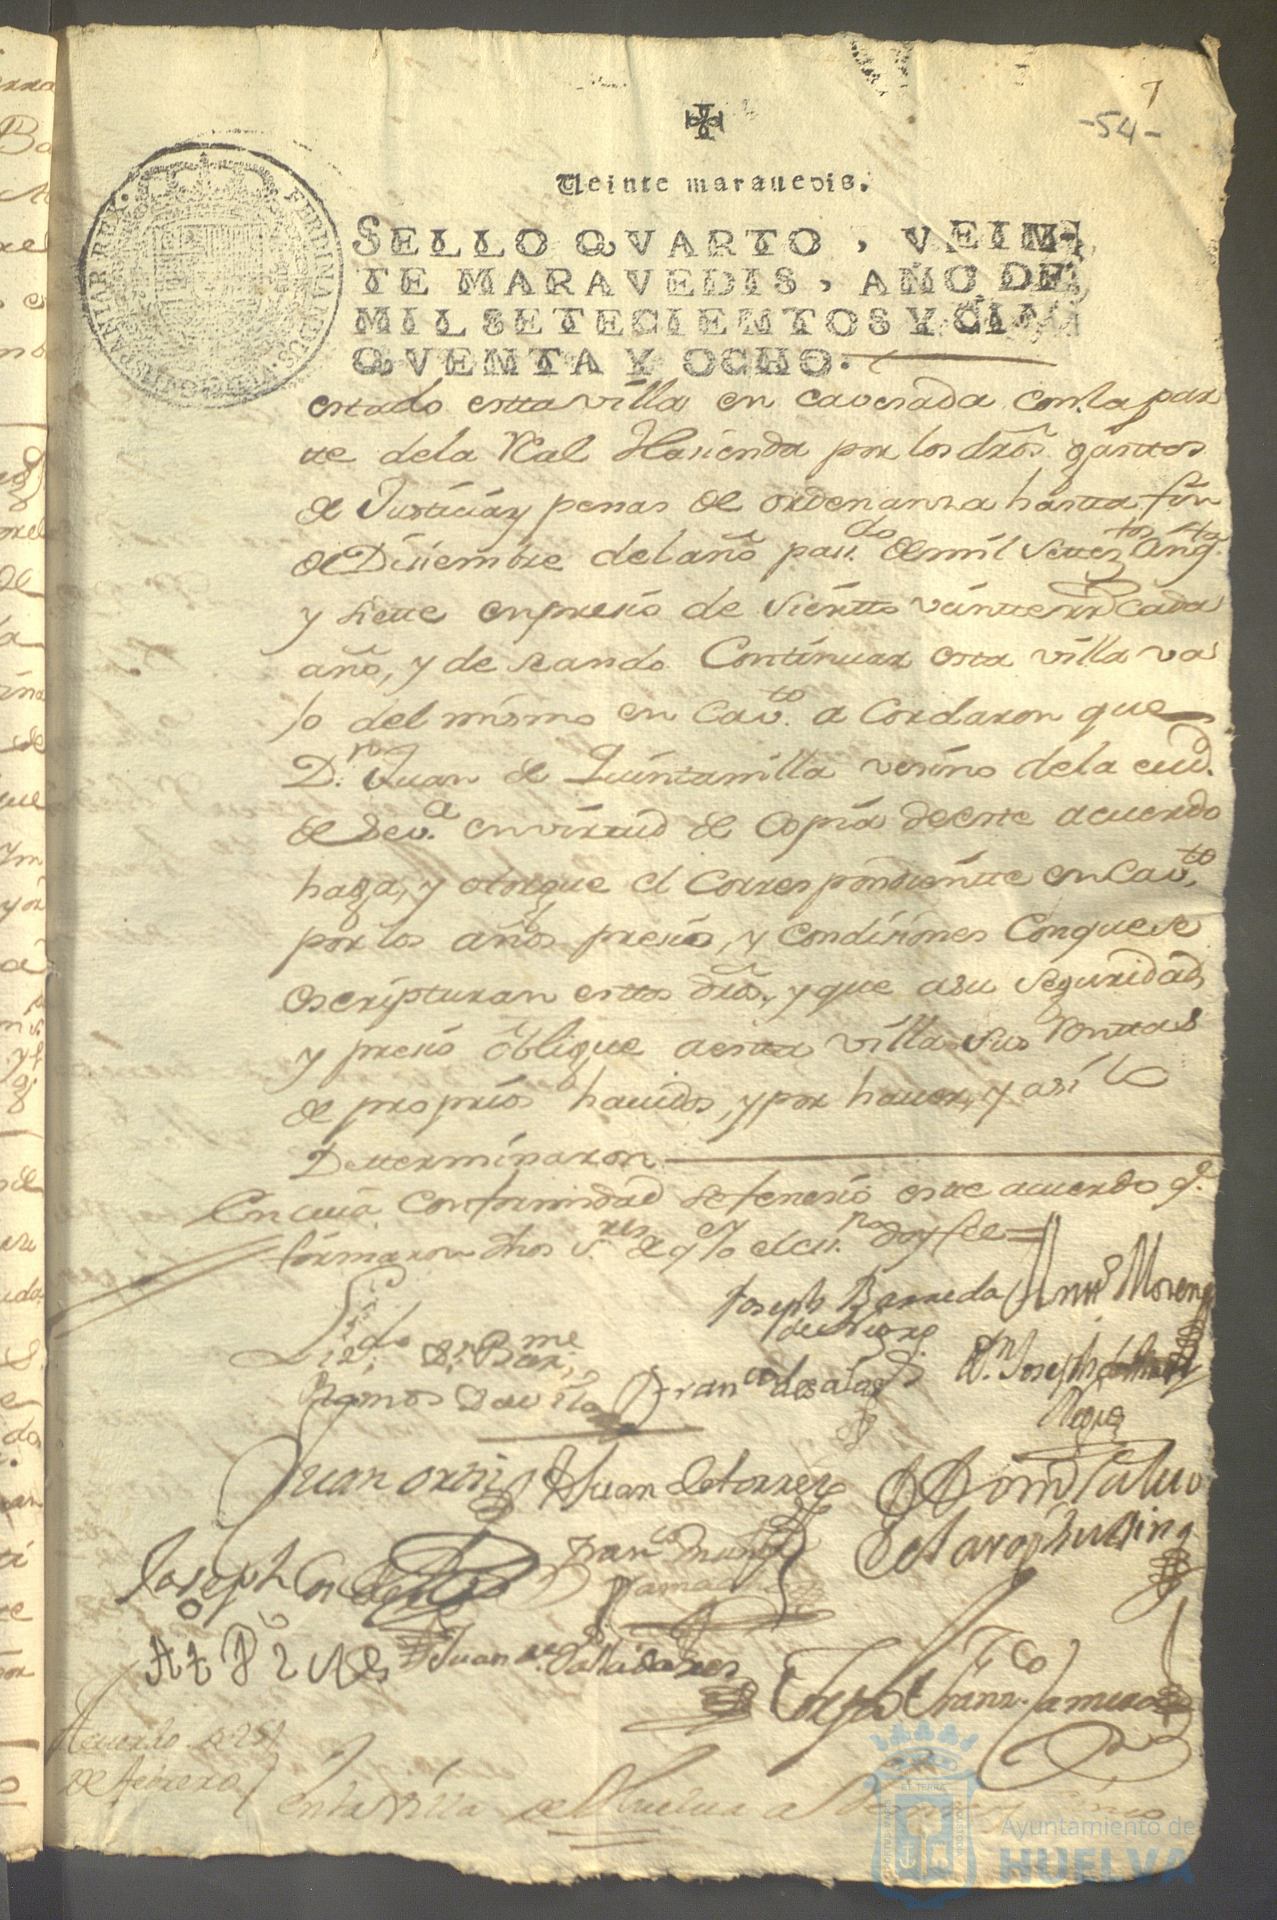 -54-
Veinte marauedis.
SELLO QVARTO, VEIN-
TE MARAVEDIS, AÑO DE
MIL SETECIENTOS Y CIN
QVENTA Y OCHO.
FERDINANDUS VI D G HISPANIAR REX
estado estta villa en cavesada con la par
tte de la Real Hasienda por los dros gasttos
de Justicia y penas de ordenansa hastta fin
de Disiembre del año pass.do de mil settez.tos
y siette en presio de sientto veintte rr cada
año, y deseando Continuar esta villa va
jo del mismo en Cav.to acordaron que
D.n Juan de Quintanilla vesino de la ciud.
de Sev.a en virtud de Copia de este acuerdo
haga, y otorgue el Correspondientte en Cav.to
por los años presio, y condisiones Conque se
escripturan esttos dros, y que a su seguridad
y presio oblique a estta villa sus Renttas
de proprios havidos, y por haver, y asi lo
Determinaron
En cuia Conformidad se fenesio este acuerdo q.e
firmaron dhos S.res de q yo el es.no doy fee =
Joseph Barreda Antt.o Moreno
Lizdo D.n Bar.me
Ramos Davila Fran.co de salas D.n Joseph de
Negre
Juan ortiz Juan de torres Dom Calvo
Joseph Fran.co Muñiz
Juan de Valladares
Acuerdo de 25
de febrero En la Villa de Huelva a veinte y sinco
Ayuntamiento de
HUELVA